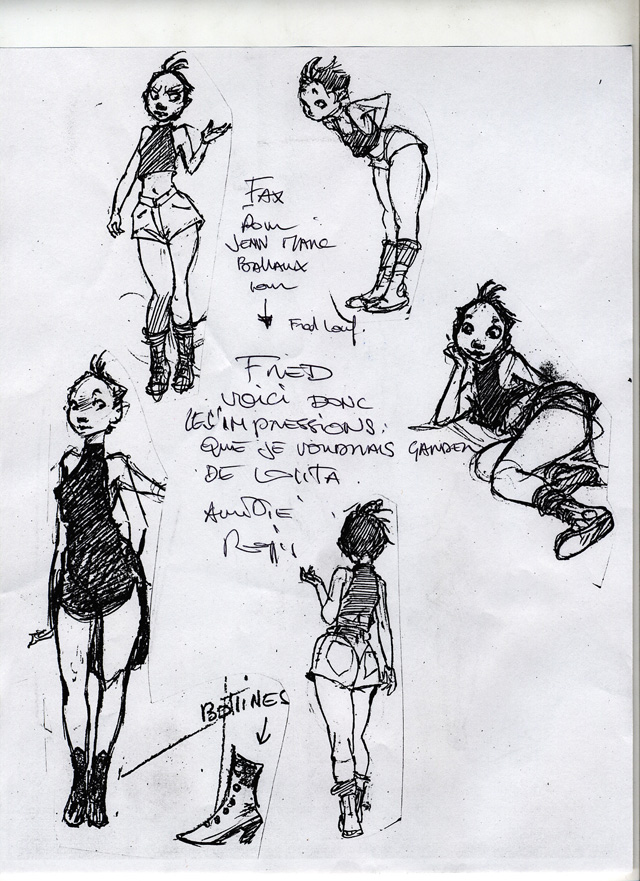 FAX
pour
JEAN MARC
Fred
FRED
VOICI DONC
LES "IMPRESSIONS.
QUE JE VOUDRAIS GARDER
DE LOLITA.
AMITIÉ
Régis
BOTTINES